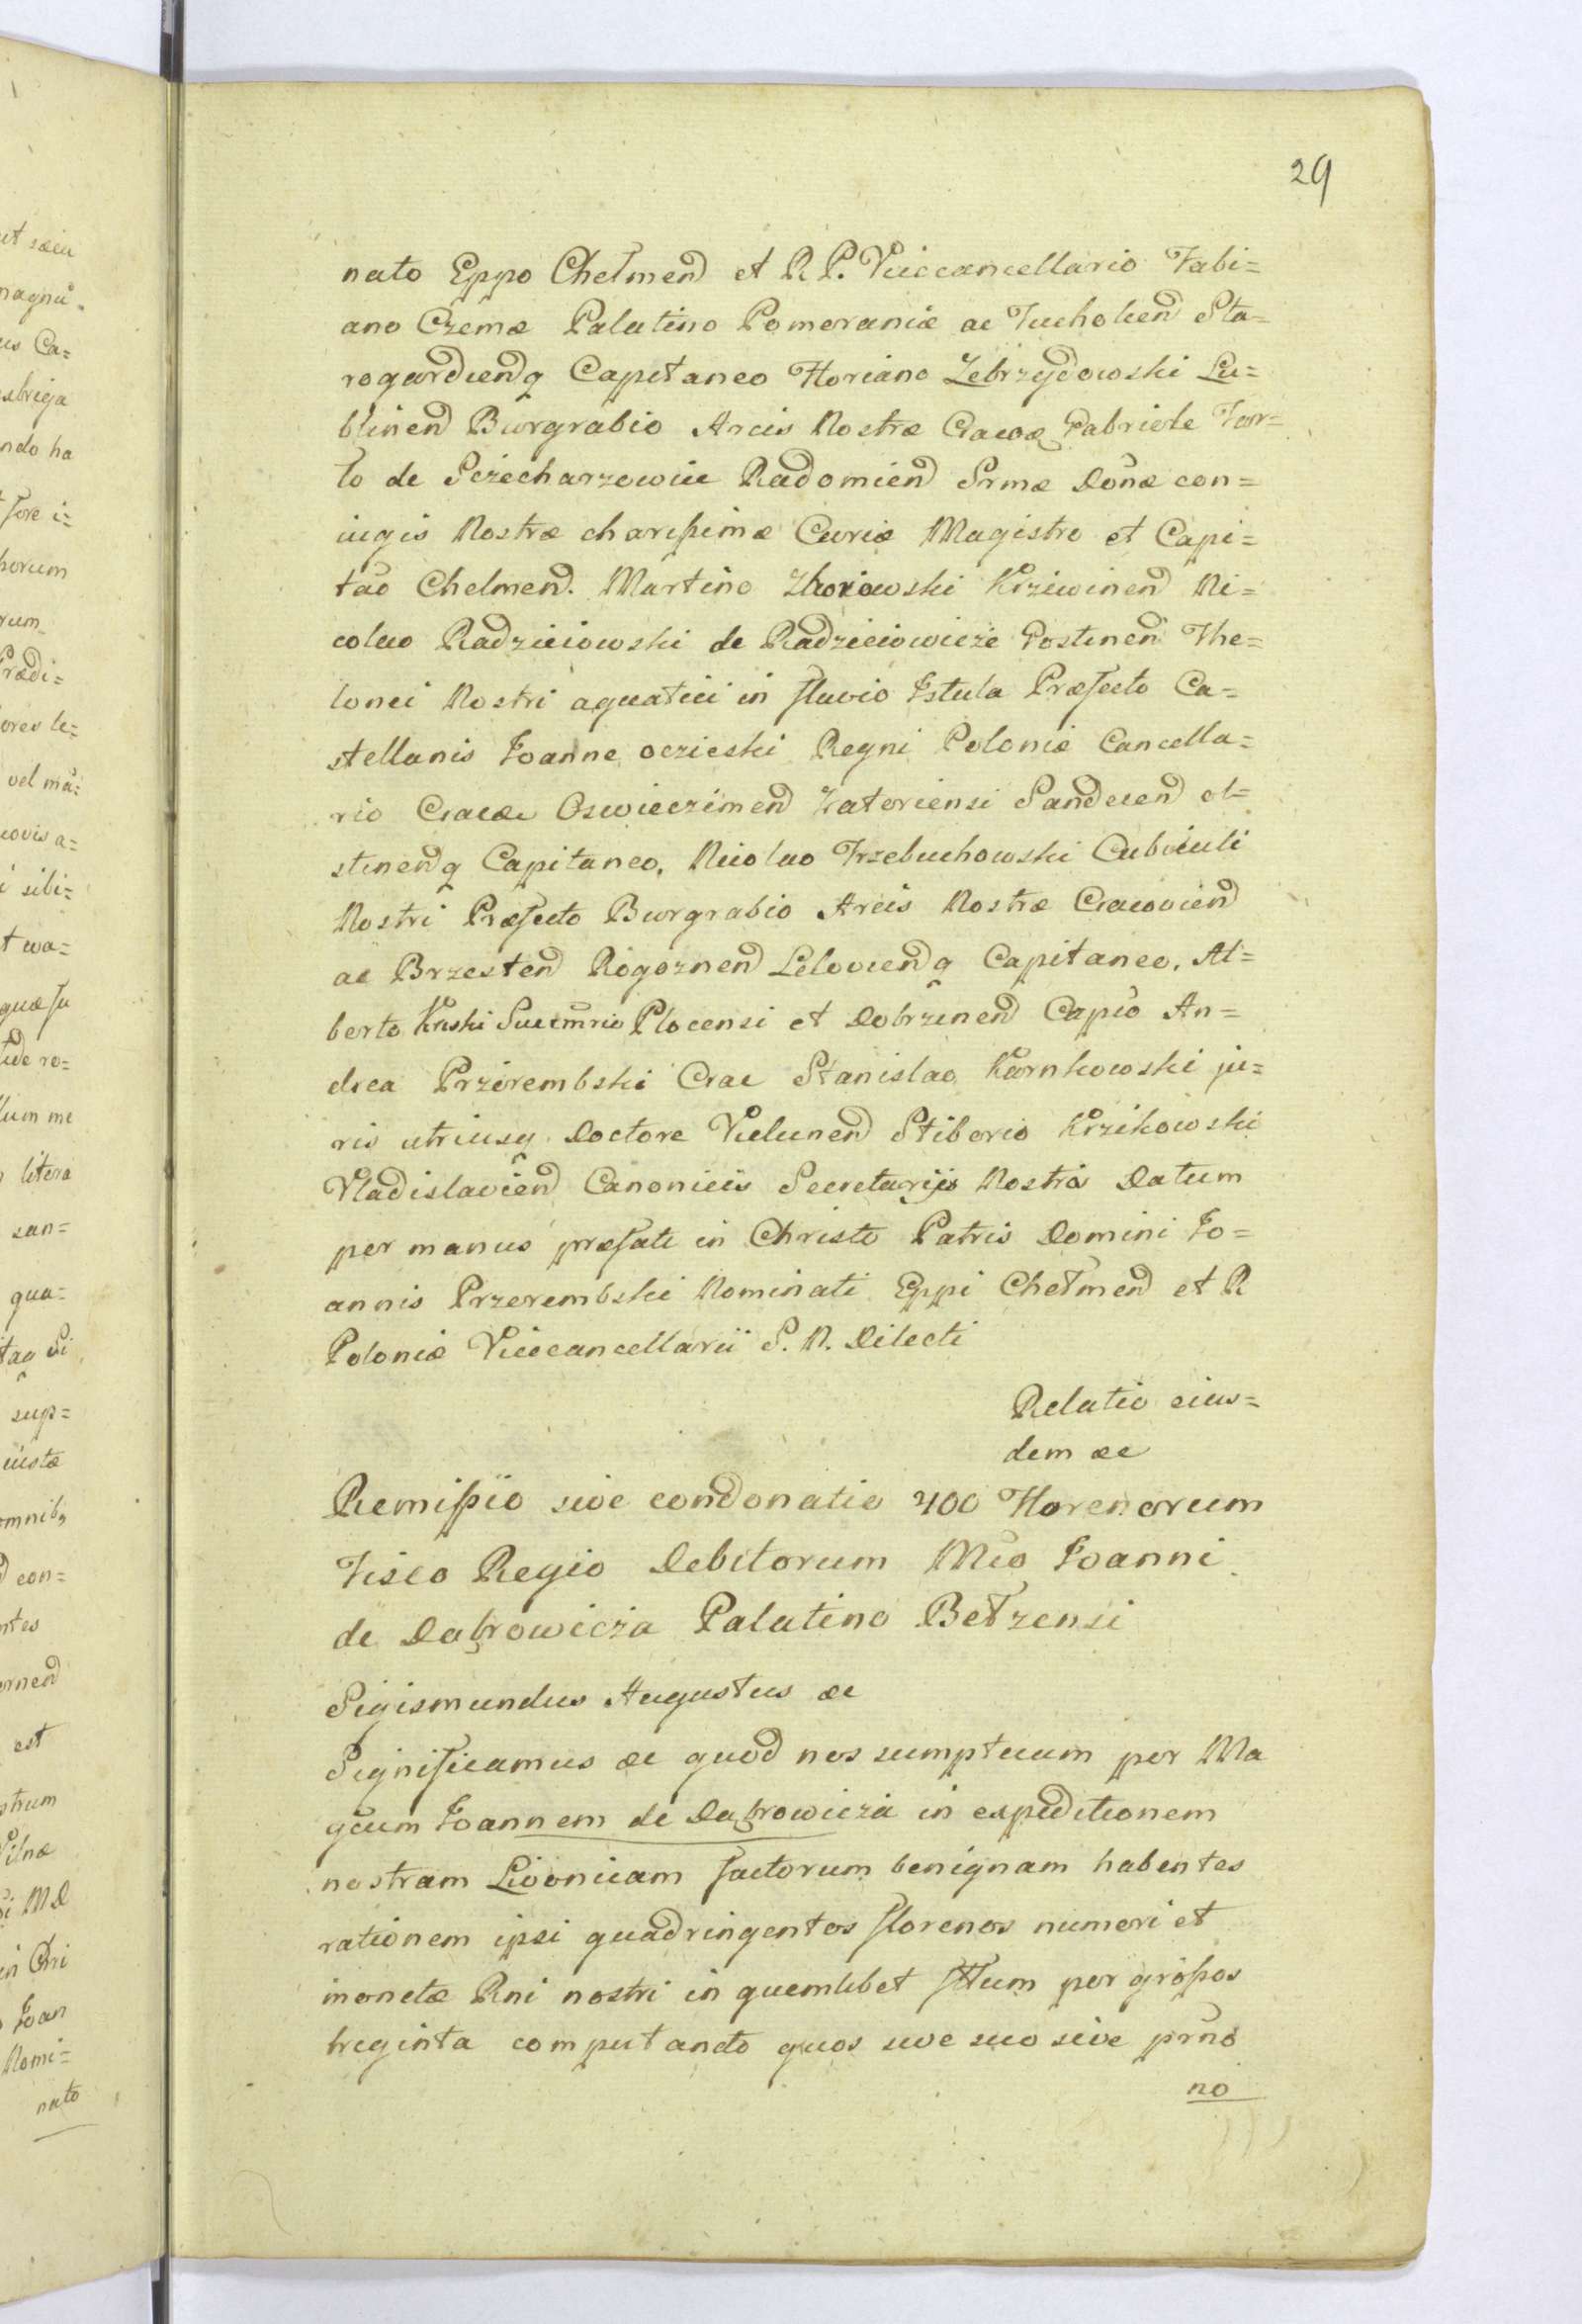 29
nato Eppo Chełmen et R P. Vicecancellario Fabi=
ano Czemæ Palatino Pomeraniæ ac Tucholien Sta=
rogardienq Capitaneo Floriano Zebrzydowski Lu=
blinen Burgrabio Arcis Nostræ Cracoæ Gabriele Tar=
ło de Sczecharzowicze Radomien Srmæ Donæ con=
iugis Nostræ charissimæ Curiæ Magistro et Capi=
tao Chelmen. Martino Zborowski Krziwinen Ni=
colao Radzieiowski de Radzieiowicze Gostinen The=
lonei Nostri aquatici in fluvio Istula Præfecto Ca=
stellanis Joanne oczieski Regni Poloniæ Cancella=
rio Cracoæ Oswieczimen Zatoriensi Sandecen ol=
stinenq Capitaneo, Nicolao Trzebuchowski Cubiculi
Nostri Præfecto Burgrabio Arcis Nostræ Cracovien
ac Brzesten Rogoznen Lelovienq Capitaneo, Al=
berto Kriski Succmrio Plocensi et Dobrzinen Capio An=
drea Przerembski Crac Stanislao Karnkowski ju=
ris utriusq Doctore Vielunen Stiborio Krzikowski
Vladislavien Canonicis Secretarijs Nostris Datum
per manus præfati in Christo Patris Domini Jo=
annis Przerembski Nominati Eppi Chełmen et R
Poloniæ Vicecancellarii S. N. Dilecti
Relatio eius=
dem æc
Remissio sive condonatio 400 Florenorum
Fisco Regio Debitorum Mco Joanni
de Dąbrowicza Palatino Bełzensi
Sigismundus Augustus æc
Significamus æc quod nos sumptuum per Ma
gcum Joannem de Dąbrowicza in expeditionem
nostram Livonicam factorum benignam habentes
rationem ipsi quadringentos florenos numeri et
monetæ Rni nostri in quemlibet fłłum per grossos
triginta computando quos sive suo sive prno
no